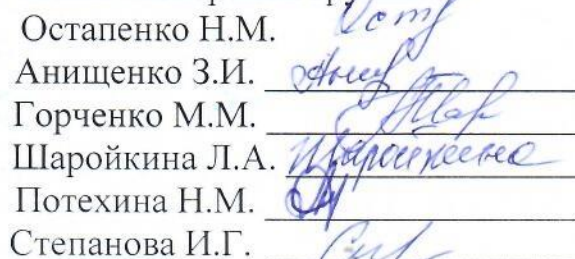 Остапенко Н.М.
Анищенко З.И.
Горченко М.М.
Шаройкина Л.А. Шаройкина
Потехина Н.М.
Степанова И.Г.